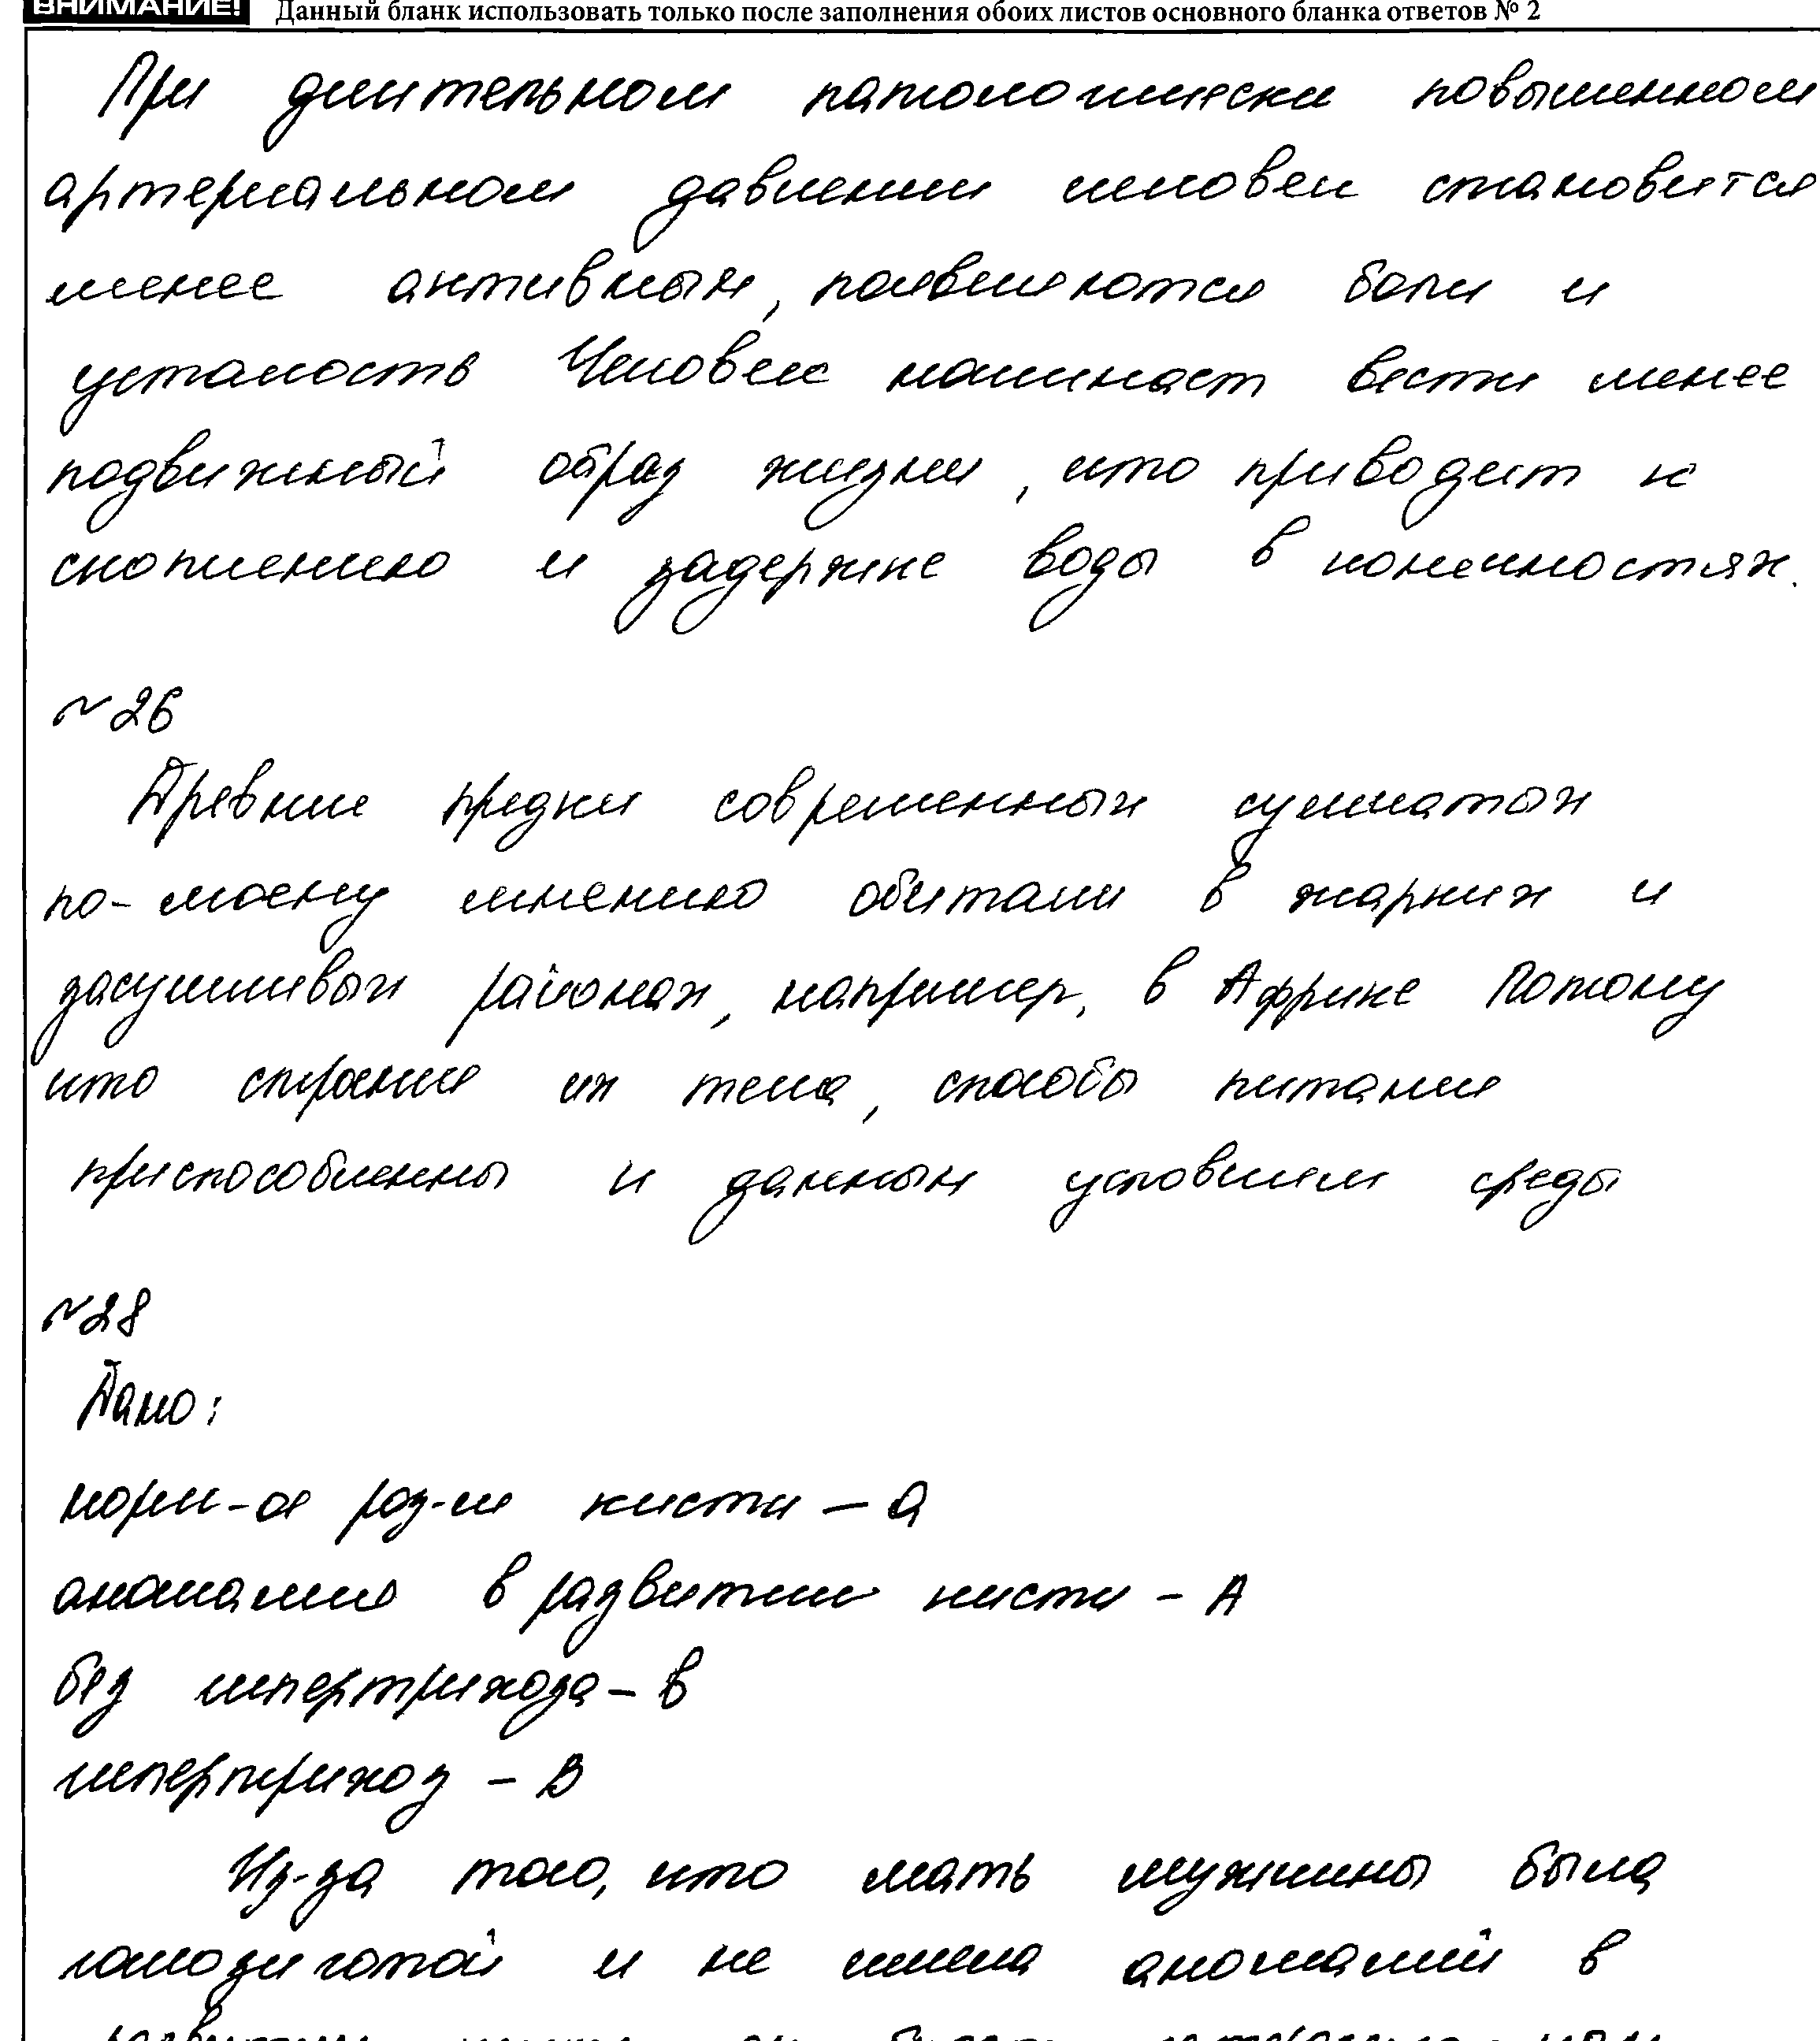 ВНИМАНИЕ! Данный бланк использовать только после заполнения обоих листов основного бланка ответов № 2
При длительном патологически повышенном
артериальном давлении человек становится
менее активным, появляются боли и
усталость Человек начинает вести менее
подвижный образ жизни, что приводит к
скоплению и задержке воды в конечностях.
№ 26
Древние предки современных сумчатых
по-моему мнению обитали в жарких и
засушливых районах, например, в Африке Потому
что строение их тела, способы питания
приспособленны к данным условиям среды
№ 28
Дано:
норм-ое раз-ие кисти – а
аномалия в развитии кисти – А
без гипертрихоза – в
гипертрихоз – В
Из-за того, что мать мужчины была
гомозиготой и не имела аномалий в